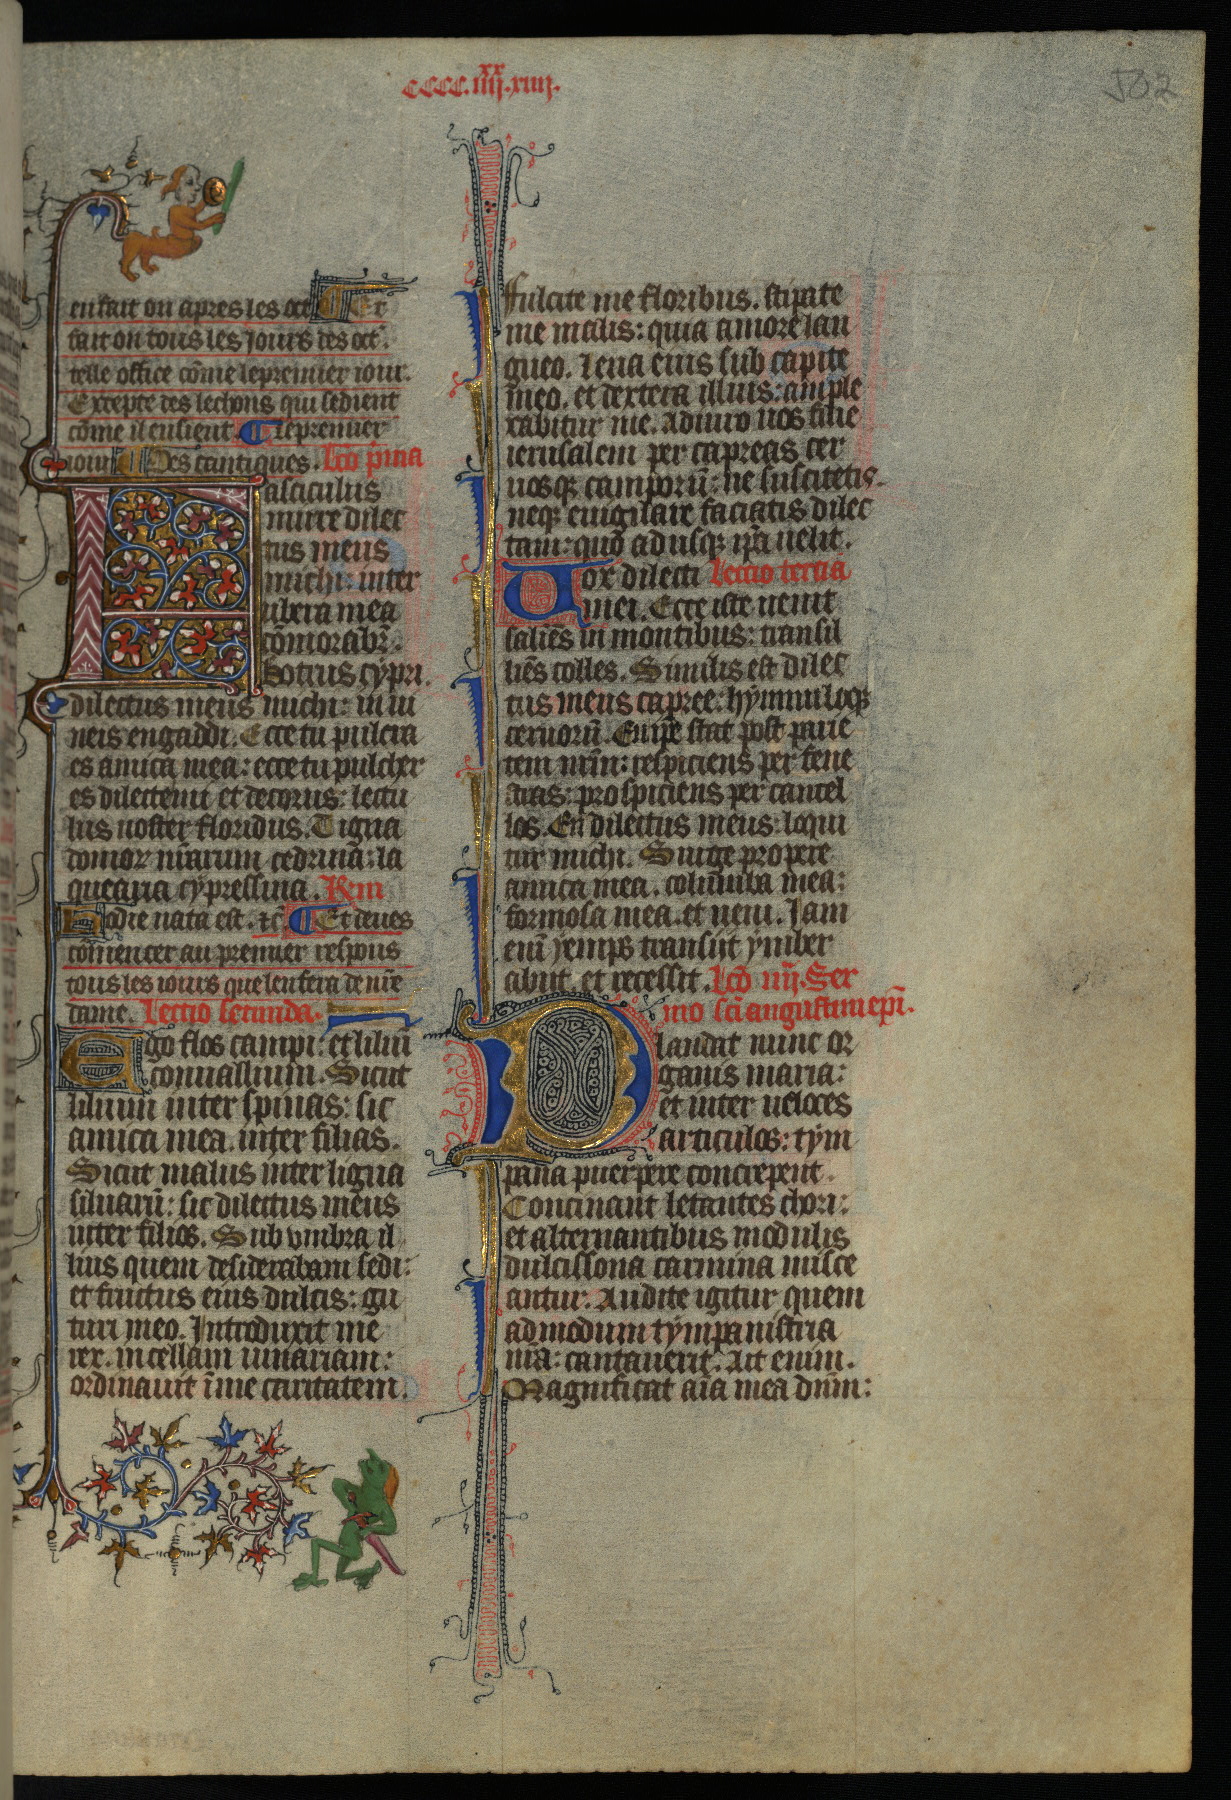 cccc.iiij.xx.xiiij.
502
en fait on apres les oct. Et
fait on tous les iours des oct.
telle office cõme le premier iour.
Excepte des lechons qui se dient
cõme il ensient. Le premier
iour Des cantiques. Lcõ p̃ma
Fasciculus
mirre dilec
tus meus
michi: inter
ubera mea
cõmorabr̃.
Botrus cypri.
dilectus meus michi: in ui
neis engaddi. Ecce tu pulcra
es amica mea: ecce tu pulcher
es dilecte mi et decorus: lectu
lus noster floridus. Tigna
domor̃ nr̃arum cedrina: la
quearia cypressina. Rm
Hodie nata est. ⁊c̃ Et deues
cõmencer au premier respons
tous les iours que len fera de nr̃e
dame. Lectio secunda.
Ego flos campi: et liliũ
conuallium. Sicut
lilium inter spinas: sic
amica mea. inter filias.
Sicut malus inter ligna
siluarũ: sic dilectus meus
inter filios. Sub vmbra il
lius quem desiderabam sedi:
et fructus eius dulcis: gu
turi meo. Introduxit me
rex. in cellam uinariam:
ordinauit ĩ me caritatem.
ffulcite me floribus. stipate
me malis: quia amore lan
gueo. Leua eius sub capite
meo. et dextera illius: ample
xabitur me. Adiuro uos filie
ierusalem per capreas cer
uosq; camporũ: ne suscitetis
neq; euigilare faciatis dilec
tam: quo ad usq; ip̃a uelit.
Vox dilecti Leccio tercia
mei. Ecce iste uenit
saliẽs in montibus: transil
liẽs colles. Similis est dilec
tus meus capree: hymnuloq;
ceruorũ. En ip̃e stat post parie
tem nr̃m: respiciens per fene
stras: prospiciens per cancel
los. En dilectus meus: loqui
tur michi. Surge propere
amica mea. columba mea:
formosa mea. et ueni. Iam
enĩ yemps transiit ymber
abiit. et recessit. Lcõ iiij. Ser
mo sc̃i augustini ep̃i.
Plaudat nunc or
ganis maria:
et inter ueloces
articulos: tym
pana puerpere concrepent.
Concinant letantes chori:
et alternantibus modulis
dulcissona carmina misce
antur. Audite igitur quem
admodum tympanistria
nr̃a: cantauerit. Ait enim.
Magnificat aĩa mea dnm̃: